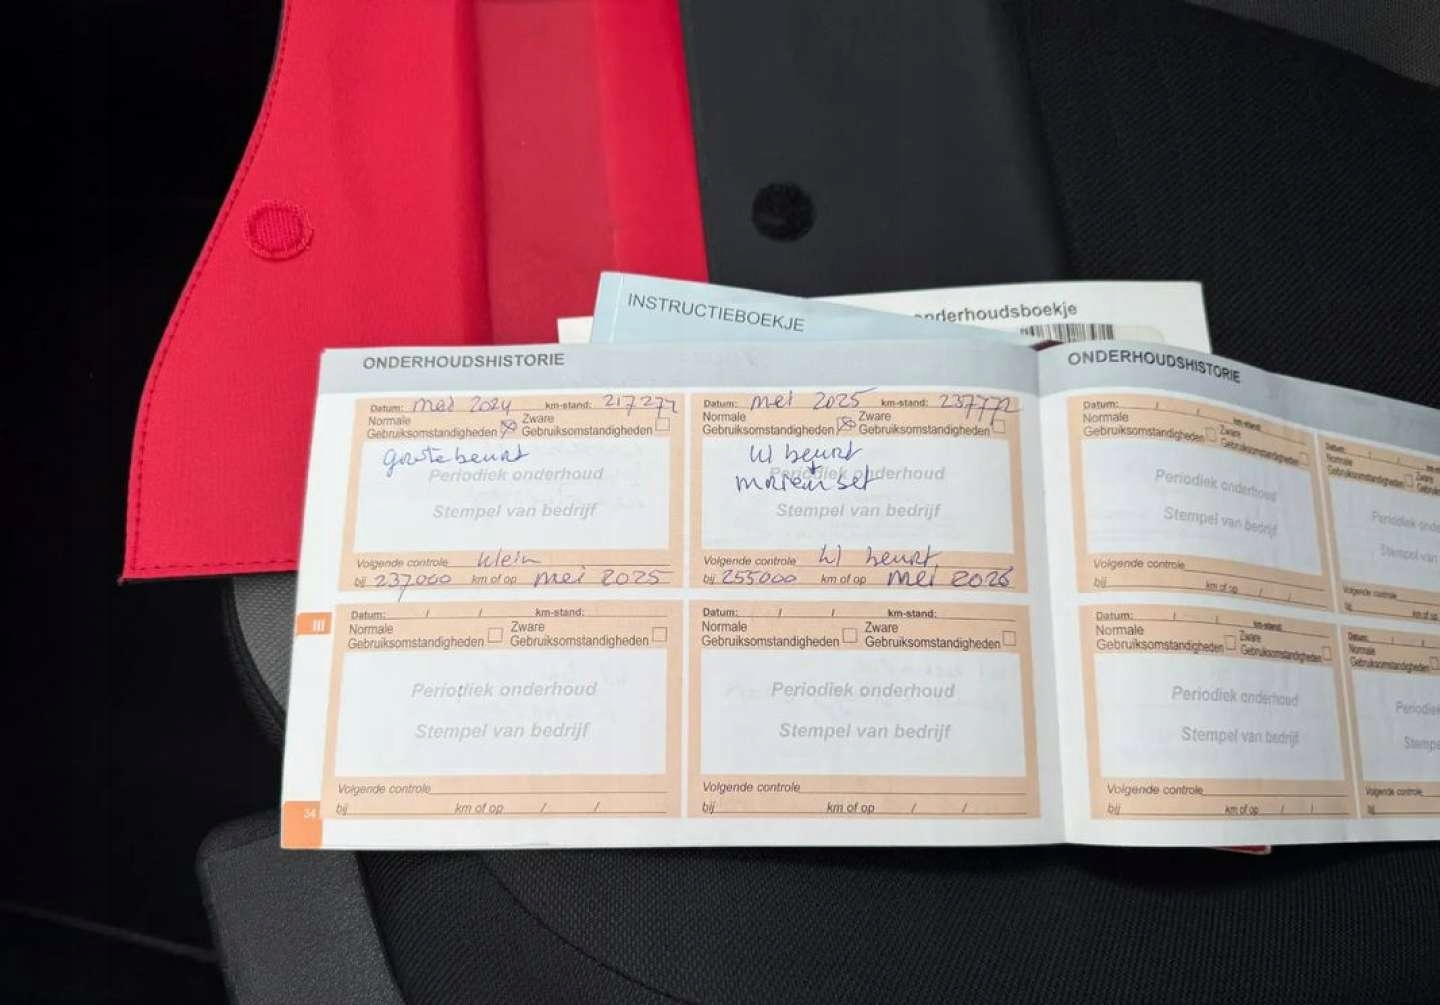 INSTRUCTIEBOEKJE
onderhoudsboekje
ONDERHOUDSHISTORIE
Datum: mei 2024 km-stand: 217277
Normale Gebruiksomstandigheden Zware Gebruiksomstandigheden
grote beurt
Periodiek onderhoud
Stempel van bedrijf
Volgende controle klein
bij 237000 km of op mei 2025
Datum: mei 2025 km-stand: 237772
Normale Gebruiksomstandigheden Zware Gebruiksomstandigheden
kl beurt
+
Periodiek onderhoud
set
Stempel van bedrijf
Volgende controle kl beurt
bij 255000 km of op mei 2026
III
Datum: / / km-stand:
Normale Gebruiksomstandigheden Zware Gebruiksomstandigheden
Periodiek onderhoud
Stempel van bedrijf
Volgende controle
bij km of op / /
Datum: / / km-stand:
Normale Gebruiksomstandigheden Zware Gebruiksomstandigheden
Periodiek onderhoud
Stempel van bedrijf
Volgende controle
bij km of op / /
34
ONDERHOUDSHISTORIE
Datum: / / km-stand:
Normale Gebruiksomstandigheden Zware Gebruiksomstandigheden
Periodiek onderhoud
Stempel van bedrijf
Volgende controle
bij km of op / /
Datum: / /
Normale Gebruiksomstandigheden
Periodiek
Stempel van
Volgende controle
bij km of op
Datum: / / km-stand:
Normale Gebruiksomstandigheden Zware Gebruiksomstandigheden
Periodiek onderhoud
Stempel van bedrijf
Volgende controle
bij km of op / /
Datum: /
Normale Gebruiksomstandigheden
Periodiek
Volgende controle
bij